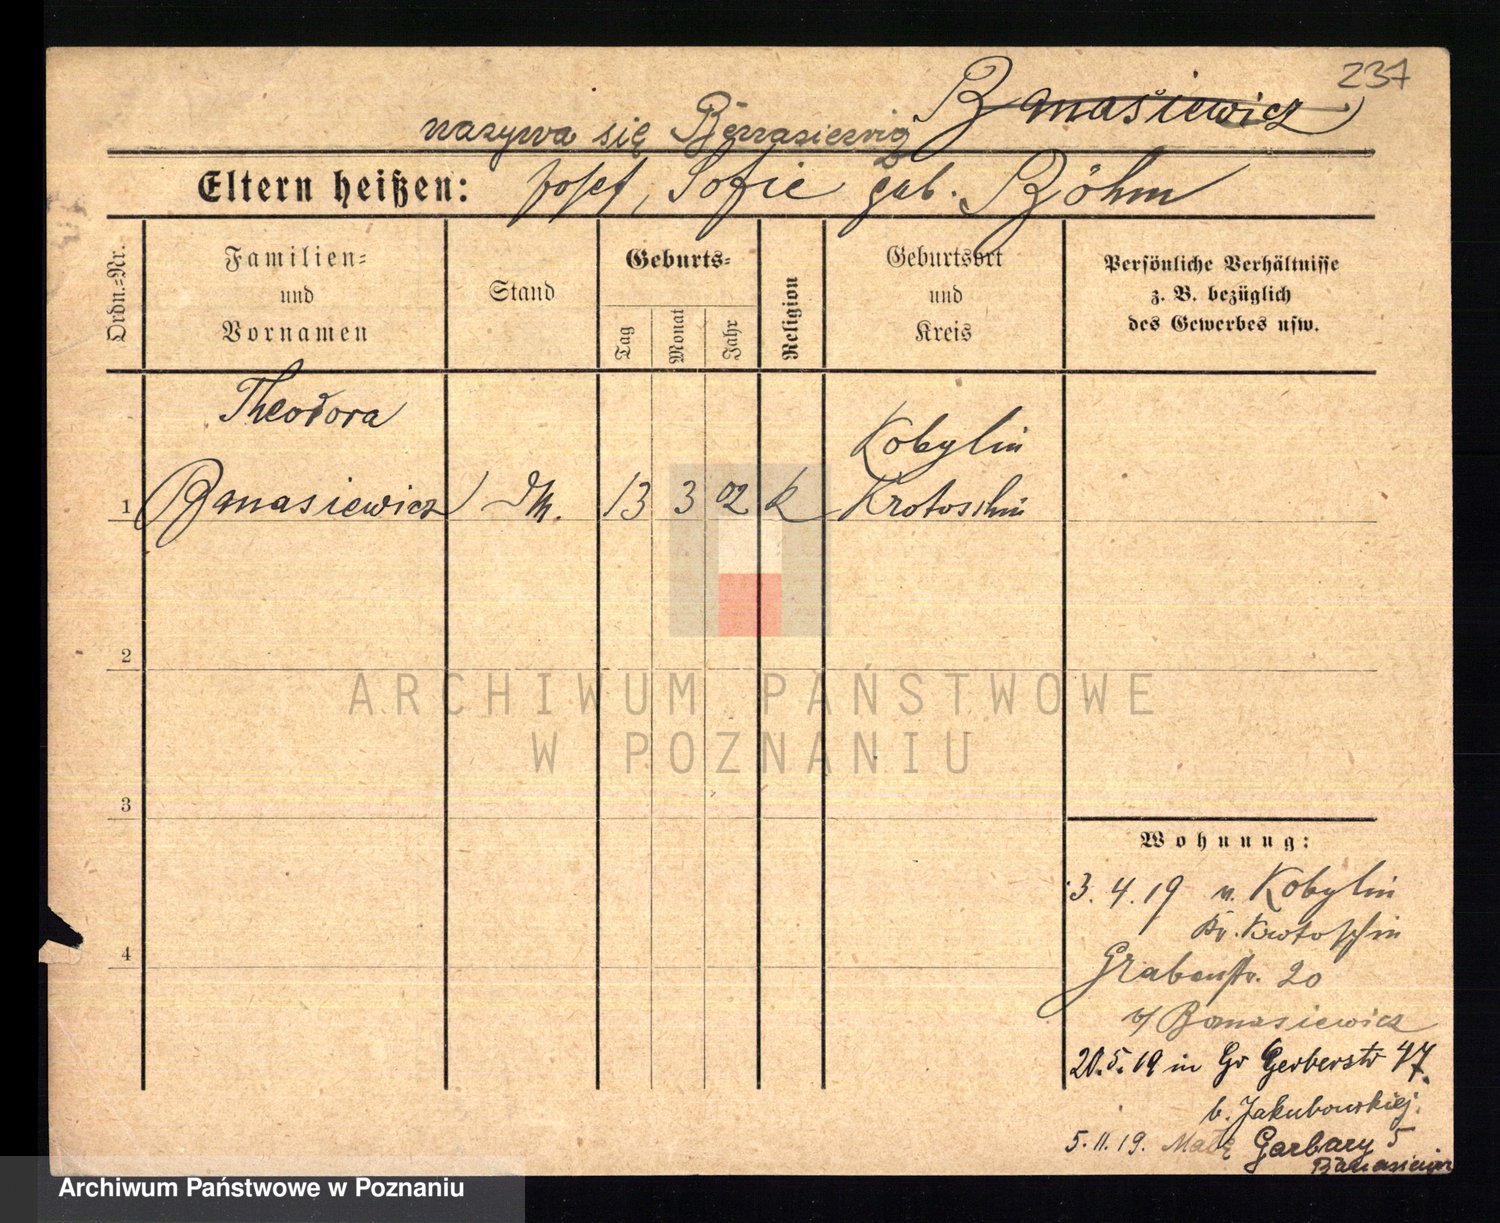 237
Banasiewicz
nazywa się
Eltern heißen: Josef, Sofie geb. Böhm
Ordn.-Nr.
Familien-
und
Vornamen
Stand
Geburts-
Tag
Monat
Jahr
Religion
Geburtsort
und
Kreis
Persönliche Verhältnisse
z. B. bezüglich
des Gewerbes usw.
Theodora
Kobylin
1 Banasiewicz 13 3 02 k Krotoschin
2
ARCHIWUM PAŃSTWOWE
W POZNANIU
3
Wohnung:
3. 4. 19 v. Kobylin
Kr. Krotoschin
4
Grabenstr. 20
b/ Banasiewicz
20.5.19 in Gr Gerberstr 47
b. Jakubowskiej.
5.11.19. Małe Garbary 5
Banasiewicz
Archiwum Państwowe w Poznaniu